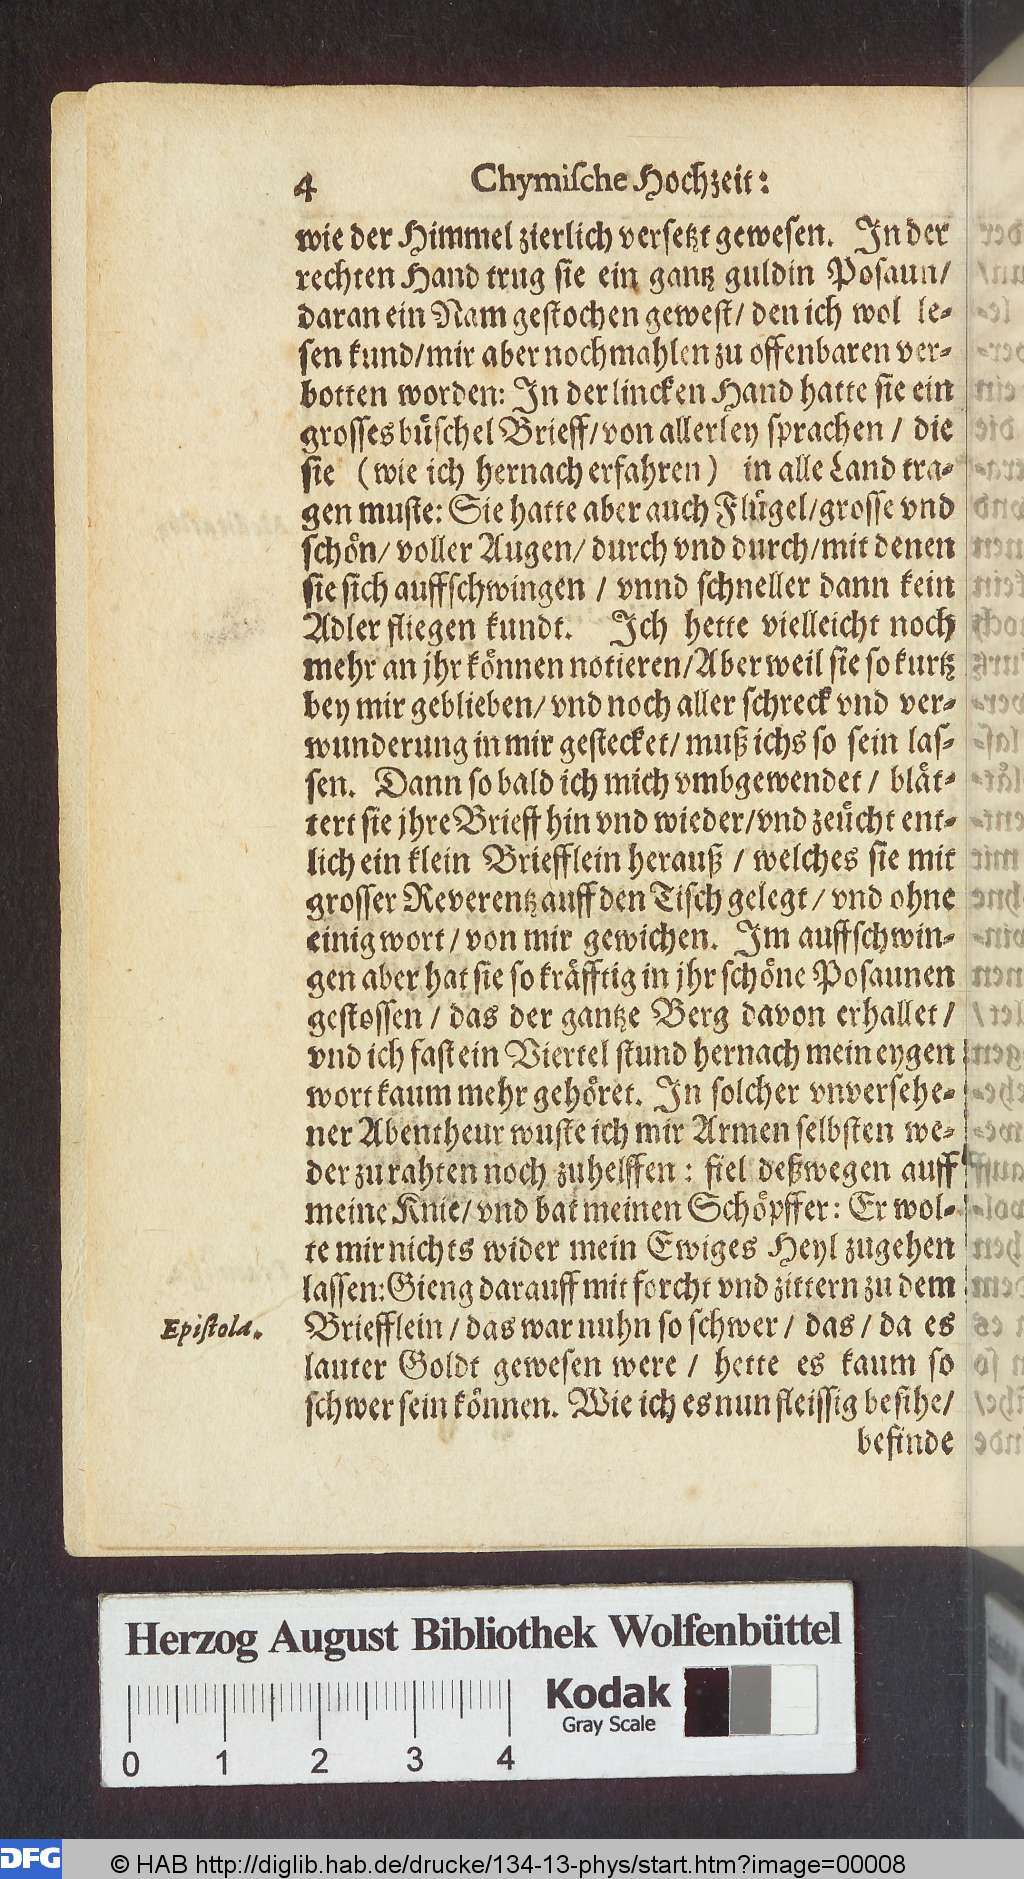 4 Chymische Hochzeit:
wie der Himmel zierlich versetzt gewesen. In der
rechten Hand trug sie ein gantz guldin Posaun/
daran ein Nam gestochen gewest/ den ich wol le-
sen kund/mir aber nochmahlen zu offenbaren ver-
botten worden: In der lincken Hand hatte sie ein
grosses büschel Brieff/von allerley sprachen/ die
sie (wie ich hernach erfahren) in alle Land tra-
gen muste: Sie hatte aber auch Flügel/grosse vnd
schön/ voller Augen/ durch vnd durch/mit denen
sie sich auffschwingen / vnnd schneller dann kein
Adler fliegen kundt. Ich hette vielleicht noch
mehr an jhr können notieren/Aber weil sie so kurtz
bey mir geblieben/ vnd noch aller schreck vnd ver-
wunderung in mir gestecket/ muß ichs so sein las-
sen. Dann so bald ich mich vmbgewendet/ blät-
tert sie jhre Brieff hin vnd wieder/vnd zeücht ent-
lich ein klein Briefflein herauß / welches sie mit
grosser Reverentz auff den Tisch gelegt/ vnd ohne
einig wort/ von mir gewichen. Im auffschwin-
gen aber hat sie so kräfftig in jhr schöne Posaunen
gestossen/ das der gantze Berg davon erhallet/
vnd ich fast ein Viertel stund hernach mein eygen
wort kaum mehr gehöret. In solcher vnversehe-
ner Abentheur wuste ich mir Armen selbsten we-
der zu rahten noch zuhelffen: fiel deßwegen auff
meine Knie/ vnd bat meinen Schöpffer: Er wol-
te mir nichts wider mein Ewiges Heyl zugehen
lassen:Gieng darauff mit forcht vnd zittern zu dem
Epistola. Briefflein/ das war nuhn so schwer/ das/ da es
lauter Goldt gewesen were/ hette es kaum so
schwer sein können. Wie ich es nun fleissig besihe/
befinde
Herzog August Bibliothek Wolfenbüttel
Kodak
Gray Scale
0 1 2 3 4
DFG © HAB http://diglib.hab.de/drucke/134-13-phys/start.htm?image=00008